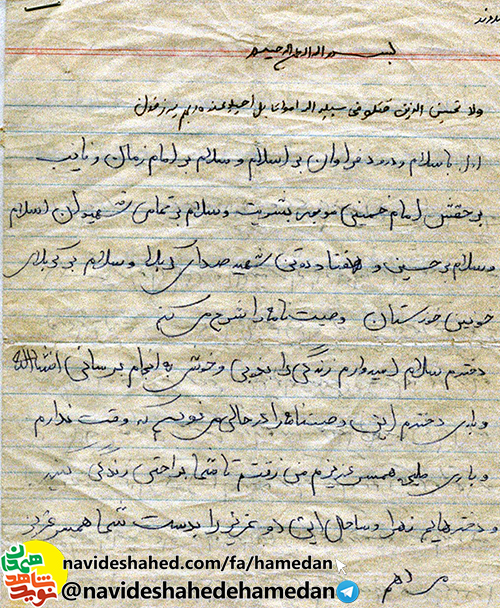 بسم الله الرحمن الرحیم
ولا تحسبن الذین قتلو فی سبیل الله امواتا بل احیاء عند ربهم یرزقون
اول با سلام و درود فراوان بر اسلام و سلام بر امام زمان و نایب
بر حقش امام خمینی بشریت وسلام بر تمامی شهیدان اسلام
وسلام بر حسین و هفتاد دوتن شهید صدای کربلا وسلام بر کربلای
خونین خوزستان وصیت نامه را شروع می کنم
دخترم سلام امیدوارم زندگی را بخوبی و خوشی به انجام برسانی انشاالله
و باری دخترم این وصیتنامه را در حالی می نویسم که وقت ندارم
و باری همسر عزیزم من رفتم تا شما براحتی زندگی کنید
و دخترهایم زهرا و ساحل این دو عزیز را بدست شما همسر عزیز
می دهم
نوید شاهد همدان
navideshahed.com/fa/hamedan
@navideshahedehamedan